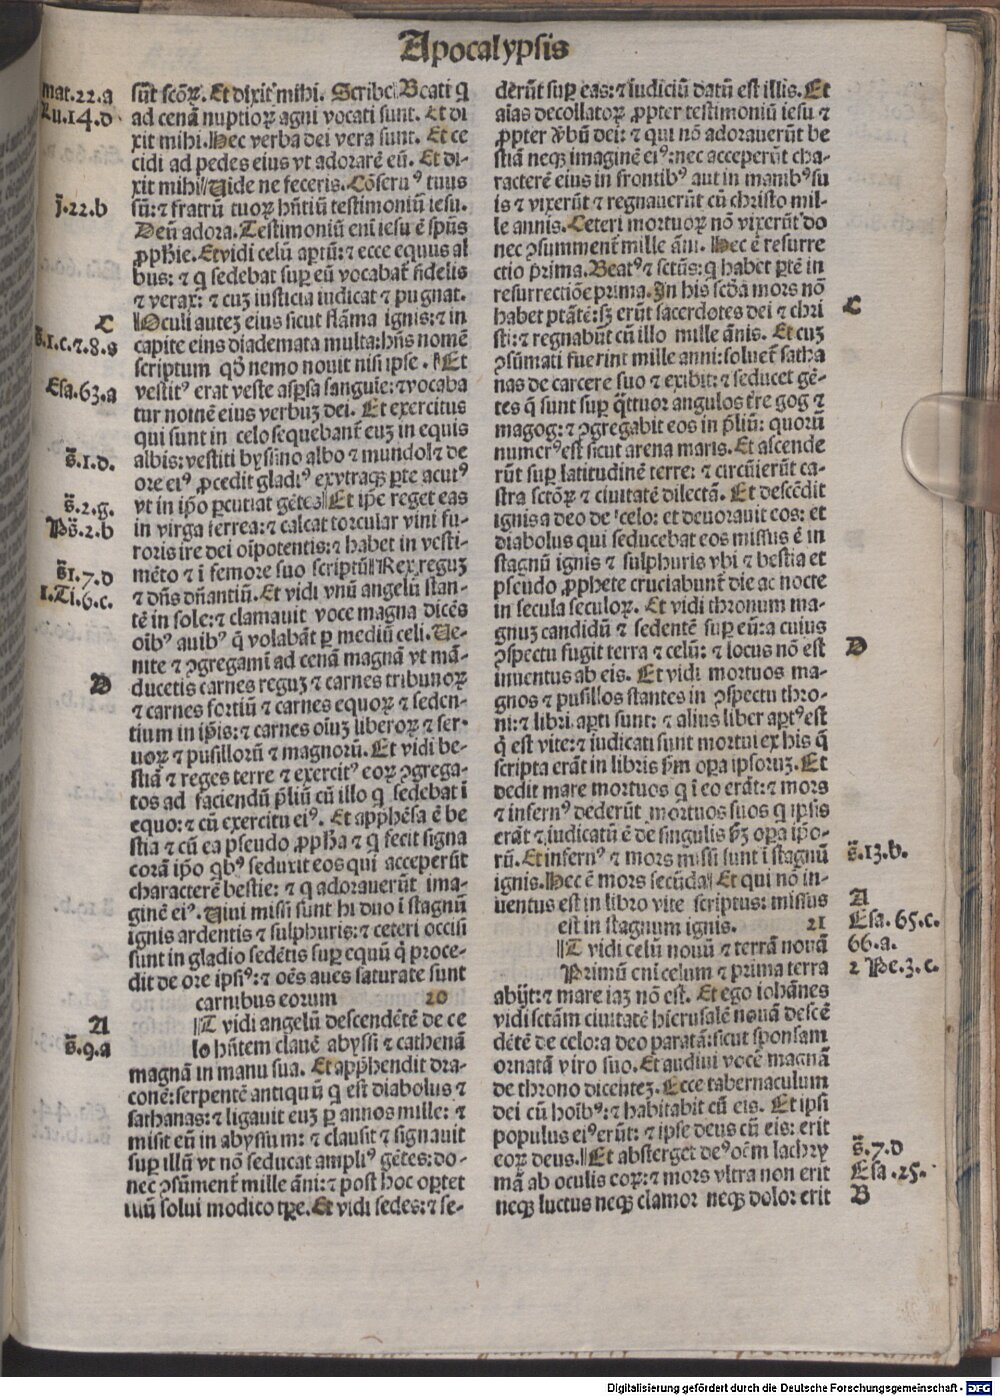 Apocalypsis
mat.22.a
Lu.14.d
j̄.22.b
C
s̄.1.c.⁊.8.s
Esa.63.a
s̄.1.d.
s̄.2.g.
Ps̄.2.b
s̄1.7.d
1.Ti.6.c.
D
A
s̄.9.a
sūt scōꝝ. Et dixit mihi. Scribe Beati q̄
ad cenā nuptioꝝ agni vocati sunt. Et di
xit mihi. Hec verba dei vera sunt. Et ce
cidi ad pedes eius vt adorarē eū. Et di-
xit mihi Uide ne feceris. Cōseruꝰ tuus
sū: ⁊ fratrū tuoꝝ hn̄tiū testimoniū iesu.
Deū adora. Testimoniū eni iesu ē spūs
ꝓphīe. Et vidi celū aꝑtū: ⁊ ecce equus al
bus: ⁊ q̄ sedebat suꝑ eū vocabat̄ fidelis
⁊ verax: ⁊ cuꝫ iusticia iudicat ⁊ pugnat.
Oculi auteꝫ eius sicut flāma ignis: ⁊ in
capite eius diademata multa: hn̄s nomē
scriptum qd̄ nemo nouit nisi ipse. Et
vestitꝰ erat veste asꝑsa sanguīe: ⁊ vocaba
tur nomē eius verbuꝫ dei. Et exercitus
qui sunt in celo sequebant̄ euꝫ in equis
albis: vestiti byssino albo ⁊ mundo. ⁊ de
ore eiꝰ ꝓcedit gladiꝰ ex vtraqꝫ ꝑte acutꝰ
vt in ip̄o ꝑcutiat gētes Et ip̄e reget eas
in virga ferrea: ⁊ calcat torcular vini fu-
roris ire dei oīpotentis: ⁊ habet in vesti-
mēto ⁊ ī femore suo scriptū Rex reguꝫ
⁊ dn̄s dn̄antiū. Et vidi vnū angelū stan-
tē in sole: ⁊ clamauit voce magna dicēs
oīb̄ꝰ auibꝰ q̄ volabāt ꝑ mediū celi. Ue-
nite ⁊ ꝯgregamī ad cenā magnā vt mā-
ducetis carnes reguꝫ ⁊ carnes tribunoꝝ
⁊ carnes fortiū ⁊ carnes equoꝝ ⁊ seden-
tium in ip̄is: ⁊ carnes oīuꝫ liberoꝝ ⁊ ser-
uoꝝ ⁊ pusilloꝝ ⁊ magnorū. Et vidi be-
stiā ⁊ reges terre ⁊ exercitꝰ eoꝝ ꝯgrega-
tos ad faciendū p̄liū cū illo q̄ sedebat ī
equo: ⁊ cū exercitu eiꝰ. Et appħēsa ē be
stia ⁊ cū ea pseudo ꝓpħa ⁊ q̄ fecit signa
corā ip̄o qbꝰ seduxit eos qui acceperūt
characterē bestie: ⁊ q̄ adorauerūt ima-
ginē eiꝰ. Uiui missi sunt hi duo ī stagnū
ignis ardentis ⁊ sulphuris: ⁊ ceteri occisi
sunt in gladio sedētis suꝑ equū q̄ proce-
dit de ore ipsiꝰ: ⁊ oēs aues saturate sunt
carnibus eorum 20
T vidi angelū descendētē de ce
lo hn̄tem clauē abyssi ⁊ cathenā
magnā in manu sua. Et appħendit dra-
conē: serpentē antiquū q̄ est diabolus ⁊
sathanas: ⁊ ligauit euꝫ ꝑ annos mille: ⁊
misit eū in abyssum: ⁊ clausit ⁊ signauit
suꝑ illū vt nō seducat ampliꝰ gētes: do-
nec ꝯsūment̄ mille āni: ⁊ post hoc oꝑtet
illū solui modico tꝑe. Et vidi sedes: ⁊ se-
derūt suꝑ eas: ⁊ iudiciū datū est illis. Et
aīas decollatoꝝ ꝓpter testimoniū iesu ⁊
ꝓpter v̄bū dei: ⁊ qui nō adorauerūt be
stiā neqꝫ imaginē eiꝰ: nec acceperūt cha-
racterē eius in frontibꝰ aut in manibꝰ su
is ⁊ vixerūt ⁊ regnauerūt cū christo mil-
le annis. Ceteri mortuoꝝ nō vixerūt do
nec ꝯsumment̄ mille āni. Hec ē resurre
ctio prima. Beatꝰ ⁊ sctūs: q̄ habet ꝑtē in
resurrectiōe prima. In his scd̄a mors nō
habet ptātē: sꝫ erūt sacerdotes dei ⁊ chri
sti: ⁊ regnabūt cū illo mille ānis. Et cuꝫ
ꝯsūmati fuerint mille anni: soluet̄ satha
nas de carcere suo ⁊ exibit: ⁊ seducet gē-
tes q̄ sunt suꝑ q̄ttuor angulos t̄re gog ⁊
magog: ⁊ ꝯgregabit eos in p̄liū: quorū
numerꝰ est sicut arena maris. Et ascende
rūt suꝑ latitudinē terre: ⁊ circūierūt ca-
stra sctōꝝ ⁊ ciuitatē dilectā. Et descēdit
ignis a deo de celo: et deuorauit eos: et
diabolus qui seducebat eos missus ē in
stagnū ignis ⁊ sulphuris vbi ⁊ bestia et
pseudo ꝓphete cruciabunt̄ die ac nocte
in secula seculoꝝ. Et vidi thronum ma-
gnuꝫ candidū ⁊ sedentē suꝑ eū: a cuius
ꝯspectu fugit terra ⁊ celū: ⁊ locus nō est
inuentus ab eis. Et vidi mortuos ma-
gnos ⁊ pusillos stantes in ꝯspectu thro-
ni: ⁊ libri aꝑti sunt: ⁊ alius liber aꝑtꝰ est
q̄ est vite: ⁊ iudicati sunt mortui ex his q̄
scripta erāt in libris s̄m oꝑa ipsoruꝫ. Et
dedit mare mortuos q̄ ī eo erāt: ⁊ mors
⁊ infernꝰ dederūt mortuos suos q̄ ipsis
erāt ⁊ iudicatū ē de singulis s̄m oꝑa ip̄o-
rū. Et infernꝰ ⁊ mors missi sunt ī stagnū
ignis. Hec ē mors secūda Et qui nō in-
uentus est in libro vite scriptus: missus
est in stagnum ignis. 21
T vidi celū nouū ⁊ terrā nouā
Primū eni celum ⁊ prima terra
abijt: ⁊ mare iaꝫ nō est. Et ego iohānes
vidi sctām ciuitatē hierusalē nouā descē
dētē de celo: a deo paratā: sicut sponsam
ornatā viro suo. Et audiui vocē magnā
de throno dicenteꝫ. Ecce tabernaculum
dei cū hoībꝰ: ⁊ habitabit cū eis. Et ipsi
populus eiꝰ erūt: ⁊ ipse deus cū eis: erit
eoꝝ deus. Et absterget deꝰ oēm lachry
mā ab oculis eoꝝ: ⁊ mors vltra non erit
neqꝫ luctus neqꝫ clamor neqꝫ dolor erit
C
D
s̄.13.b.
A
Esa.65.c.
66.a.
2 Pe.3.c.
s̄.7.d
Esa.25.
B
Digitalisierung gefördert durch die Deutsche Forschungsgemeinschaft - DFG